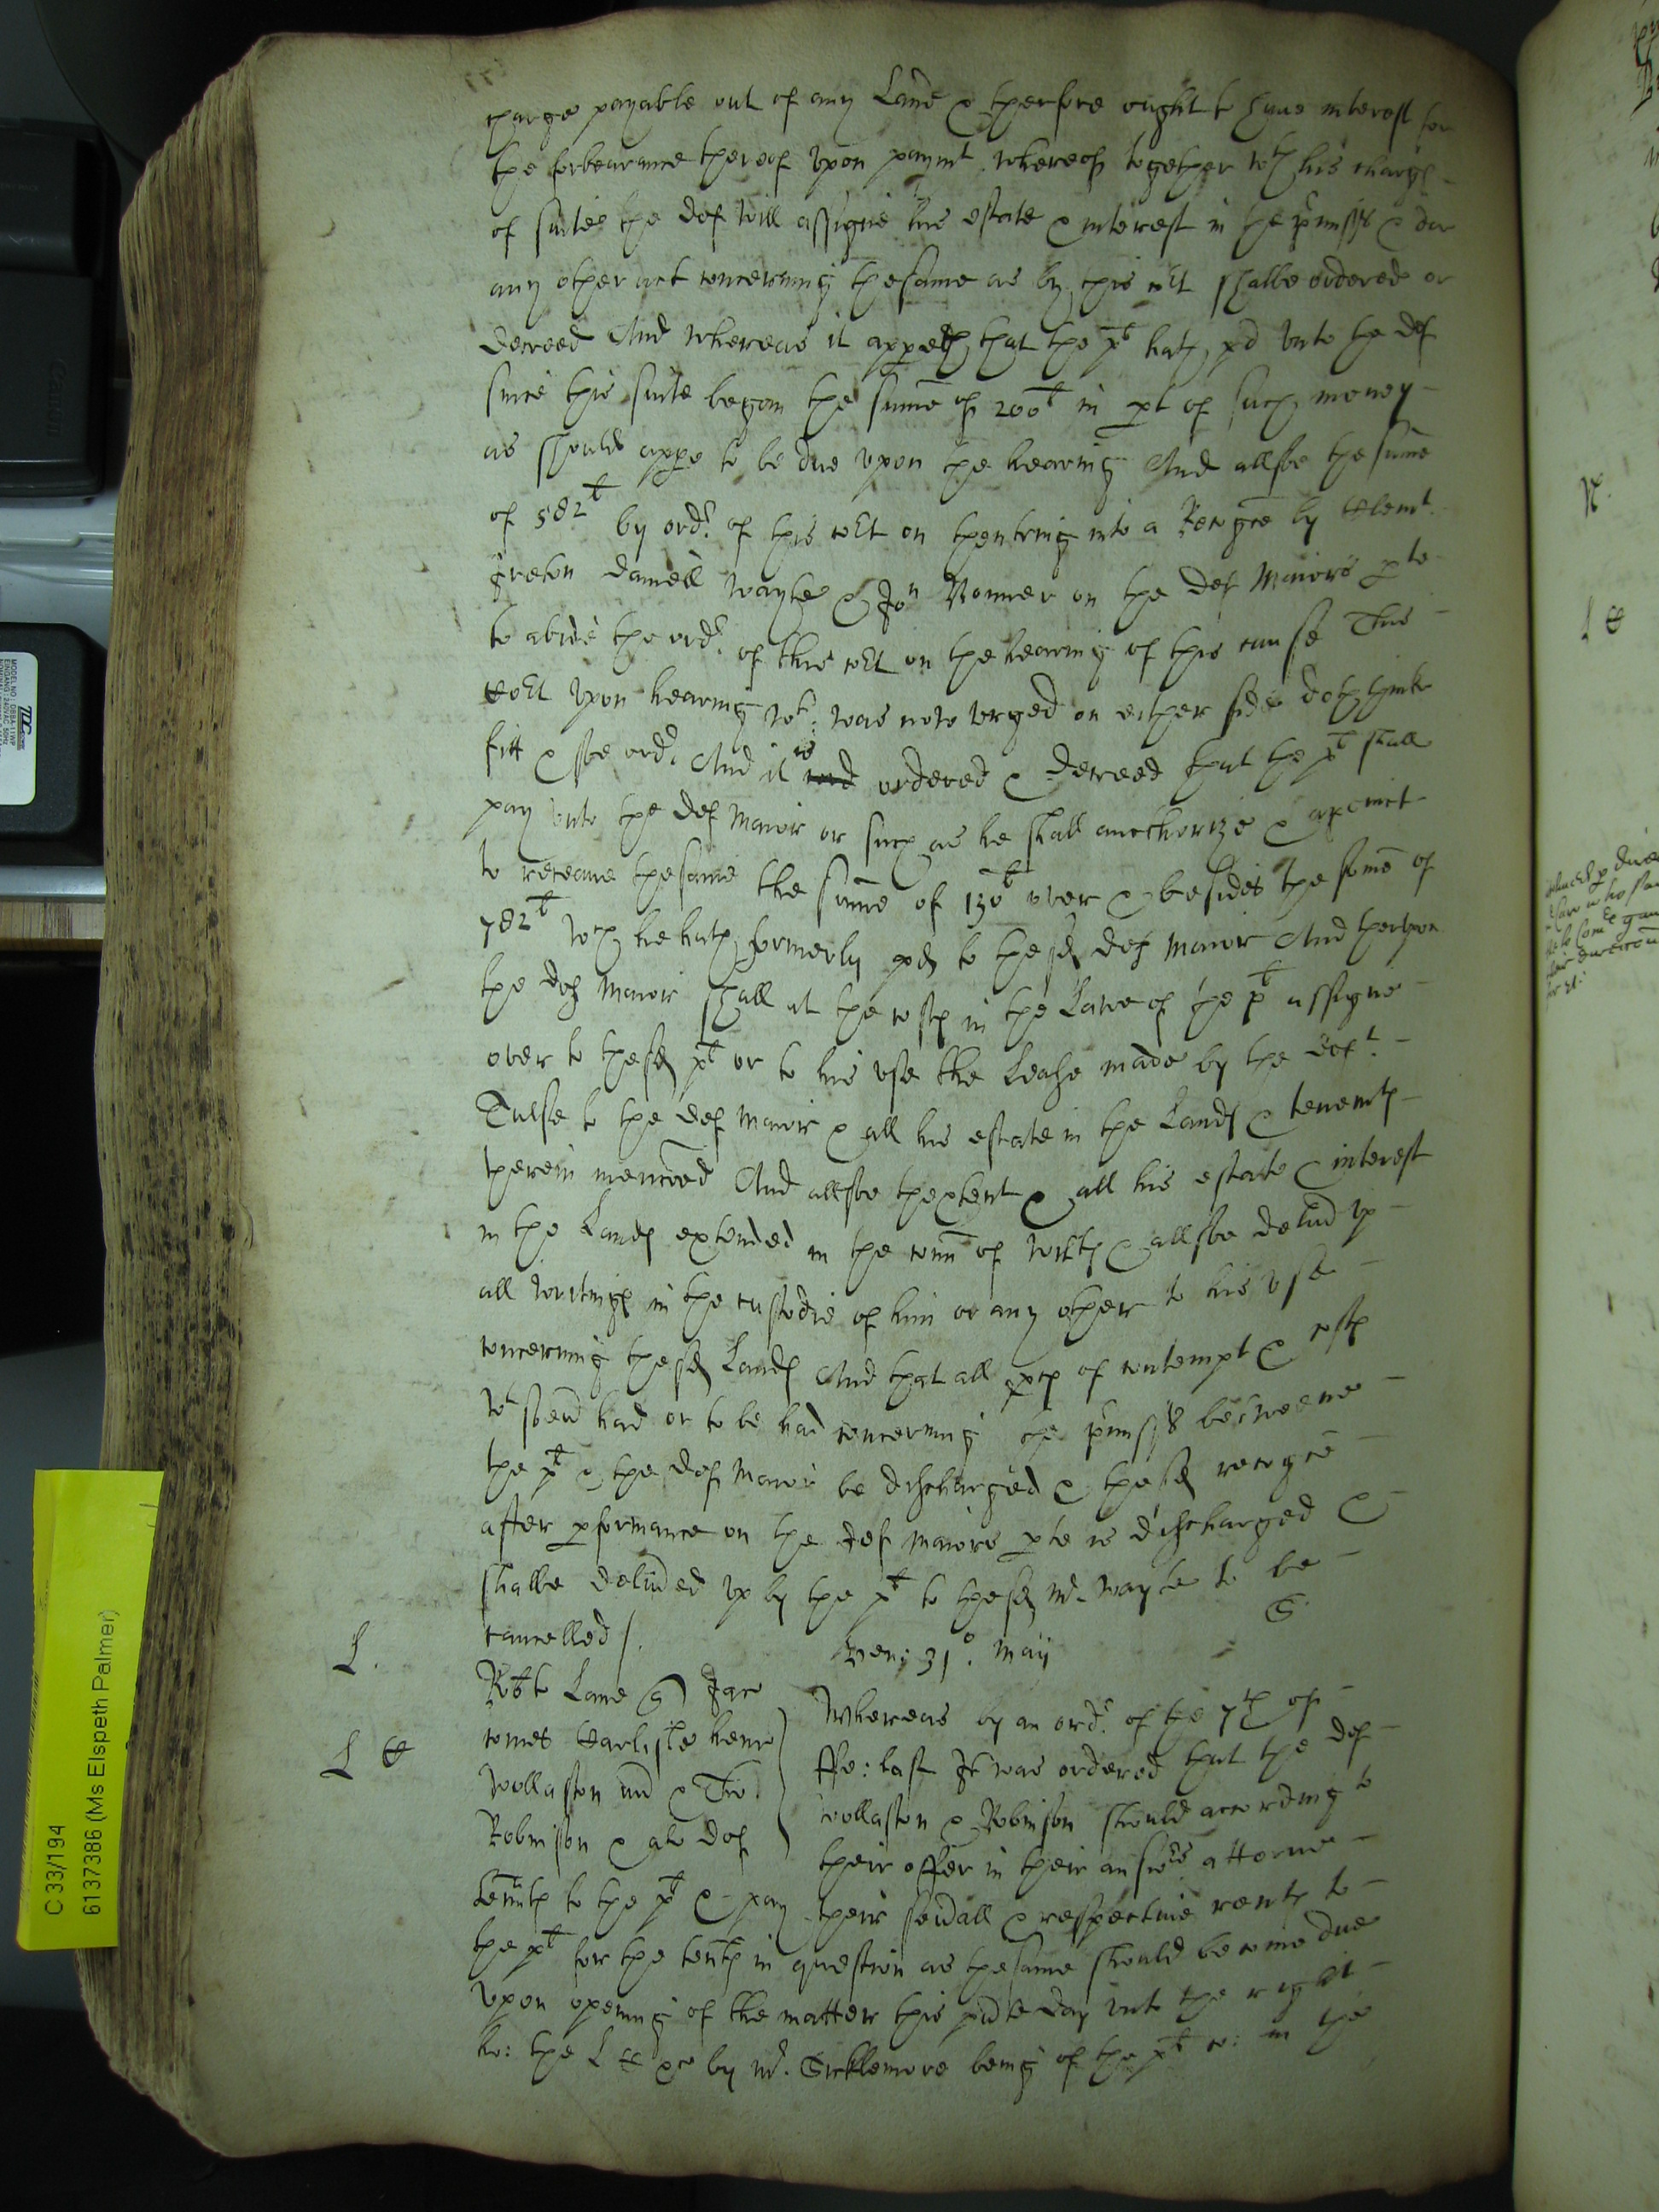 charge payable out of any Land & therfore ought to haue interest for
the forbearance thereof vpon paymt whereof together wth his charges
of suite the def will assigne his estate & interest in the prmisss & doe
any other act concerning thesame as by this cot shalbe ordered or
decreed And whereas it appeth that the plt hath pd vnto the def
since this suite began the sume of 200l in pt of such money
as should appe to be due vpon the hearing And allsoe the sume
of 582l by ordr of this cot on thentring into a Recognce by Clemt
Daniell Wayte & Jon on the def Maiors pte
to abide the ordr of this cot on the hearing of this cause This
cot vpon hearing wt was now vrged on either side doth thinke
fitt & soe ordr And it is and ordered & decreed that the plt shall
pay vnto the def Maior or such as he shall aucthorize & apoint
to receaue thesame the sume of 130l over & besides the some of
782l wch he hath formerly pd to thesd def Maior And thervpon
the def Maior shall at the costs in the Lawe of the plt assigne
over to thesd plt or to his vse the Lease made by the deft
Tulse to the def Maior & all his estate in the Lands & tenemts
therein menconed And allsoe thextent & all his estate & interest
in the Lands extended in the coun of Wilts & allsoe deliud vp
all writings in the custodie of him or any other to his vse
concerning thesd Lands And that all pces of contempt & costs
wtsoeud had or to be had concerning the prmisss betweene
the plt & the def Maior be discharged & thesd recogce
after pformance on the def Maiors pte is discharged &
shalbe deliued vp by the plt to thesd Mr Wayte to be
cancelled /.
Ven: 31o. May
S
L.
Robte Lane q Jaco
comes Carlisle henr
Wollaston md & Tho
Robinson & als def
L C
Whereas by an ordr of the 7th of
ffe: last It was ordered that the def
Wollaston & Robinson should according to
their offer in their answrs attorne
tenmts to the plt & pay their seuall & respectiue rents to
the plt for the tents in question as thesame should become due
vpon opening of the matter this pnte day vnto the right
ho: the L C &c by Mr. Sicklemore being of the plt co: in the
C 33/194
6137386 (Ms Elspeth Palmer)
Canon
TDC
MODEL NO : DSSA-11WP
L C